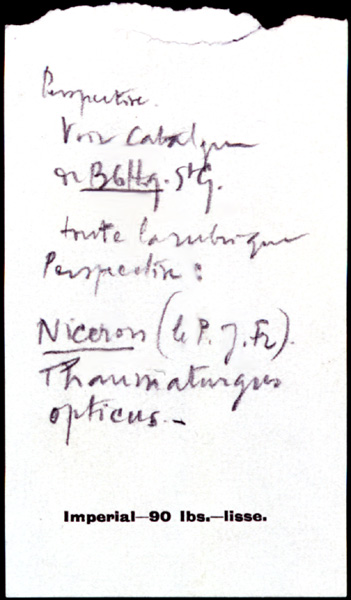 Perspective.
Voir Catalogue
de St G.
toute la rubrique
Perspective :
Niceron (le P. J. Fr).
Thaumaturgus
opticus.—
Imperial—90 lbs.—lisse.